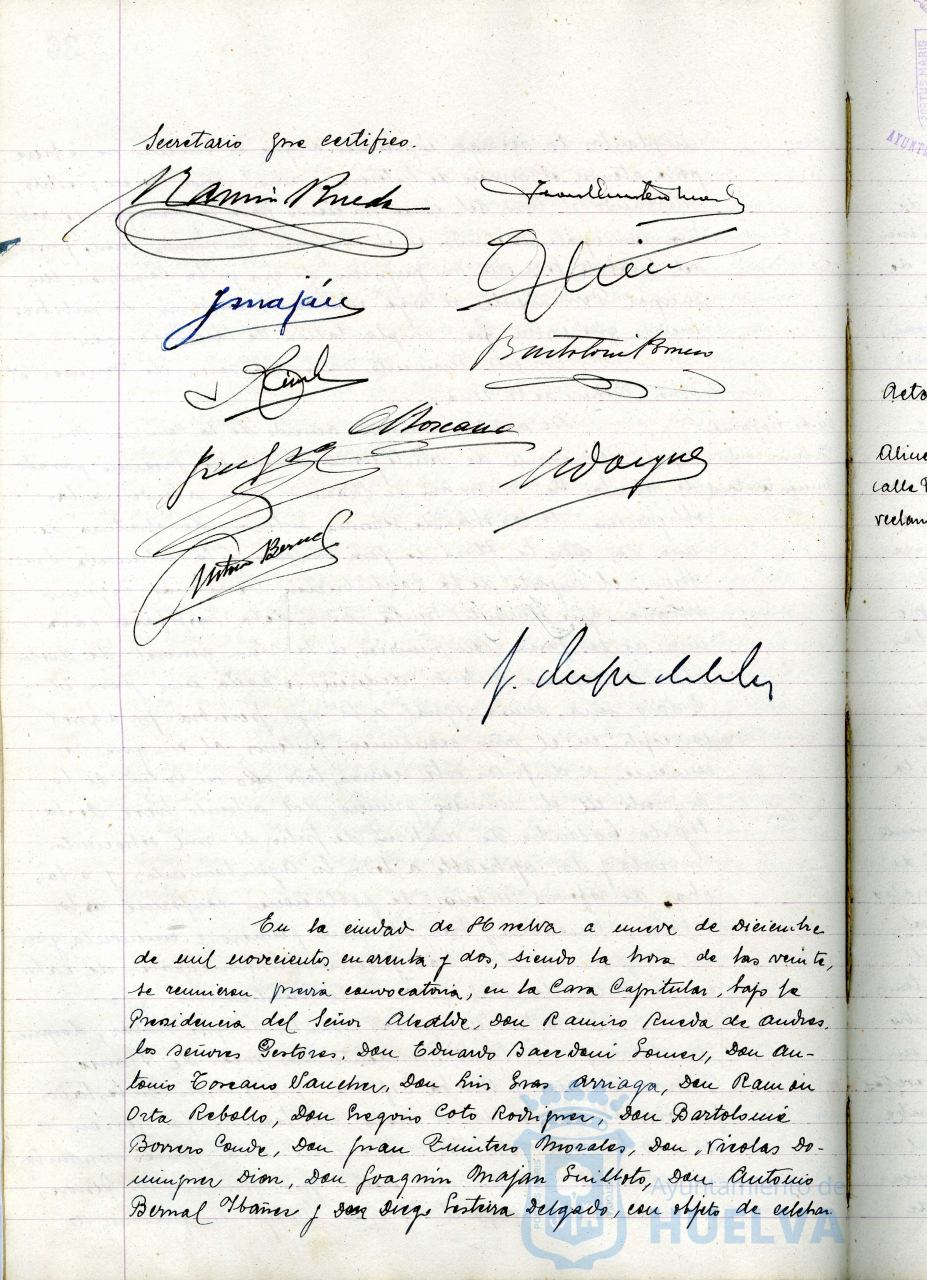 Secretario que certifico.
Ramiro Rueda
Juan Quintero Morales
J. Maján
Bartolomé Borrero
A Toscano
Antonio Bernal
Acta
Aline
calle
reclam
En la ciudad de Huelva a nueve de Diciembre
de mil novecientos cuarenta y dos, siendo la hora de las veinte,
se reunieron previa convocatoria, en la Casa Capitular, bajo la
Presidencia del Señor Alcalde, Don Ramiro Rueda de Andres,
los Señores Gestores, Don Eduardo Gomez, Don An-
tonio Toscano Sanchez, Don Luis Gras Arriaga, Don Ramón
Orta Rebollo, Don Gregorio Coto Rodriguez, Don Bartolomé
Borrero Conde, Don Juan Quintero Morales, Don Nicolas Do-
minguez Diaz, Don Joaquin Maján Guilloto, Don Antonio
Bernal Ibáñez y Don Diego Delgado, con objeto de celebrar
Ayuntamiento de
HUELVA